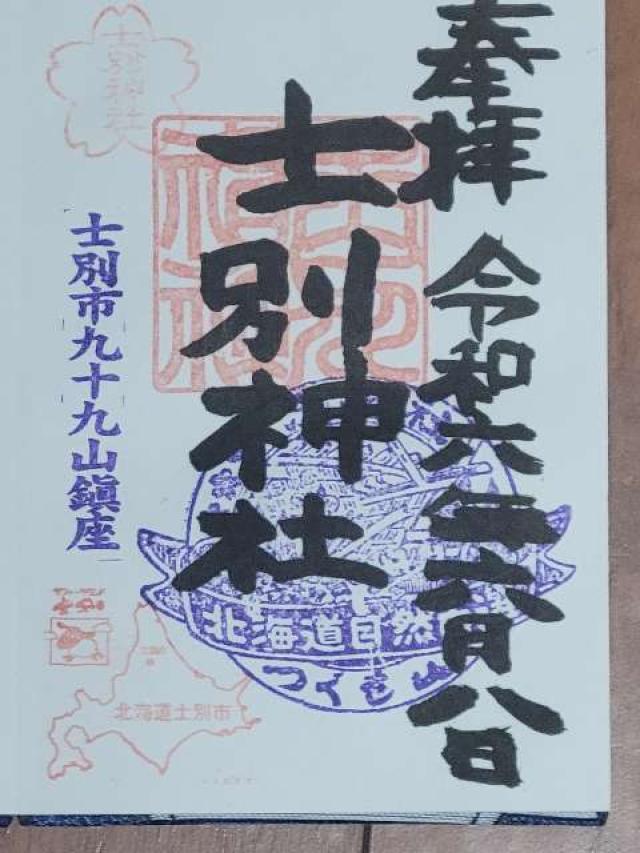 奉拝
令和六年六月八日
士別神社
士別神社
士別市九十九山鎮座
北海道自然
つくも山
北海道士別市